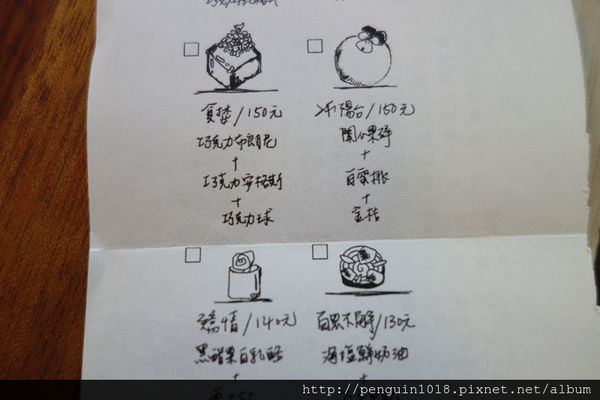 /150元
巧克力布朗尼
+
巧克力安格斯
+
巧克力球
陽台/150元
開心果碎
+
+
金桔
矯情/140元
黑醋栗白乳酪
+
百思不解/130元
海塩鮮奶油
+
http://penguin1018.pixnet.net/album